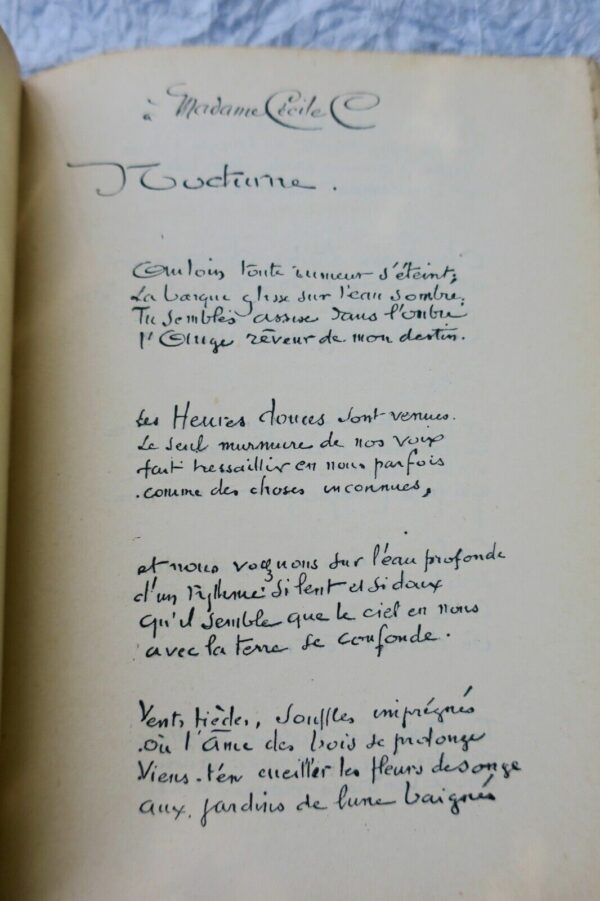 à Madame Cécile C
Nocturne.
Au loin toute rumeur s'éteint;
La barque glisse sur l'eau sombre;
Tu sembles assise dans l'ombre
l'Ange rêveur de mon destin.
Les Heures douces sont venues.
Le seul murmure de nos voix
fait tressaillir en nous parfois
comme des choses inconnues,
et nous voguons sur l'eau profonde
d'un rythme si lent et si doux
Qu'il semble que le ciel en nous
avec la terre se confonde.
Vents tièdes, souffles imprégnés
où l'Âme des bois se prolonge
Viens t'en cueillir les fleurs de songe
aux jardins de lune baignés